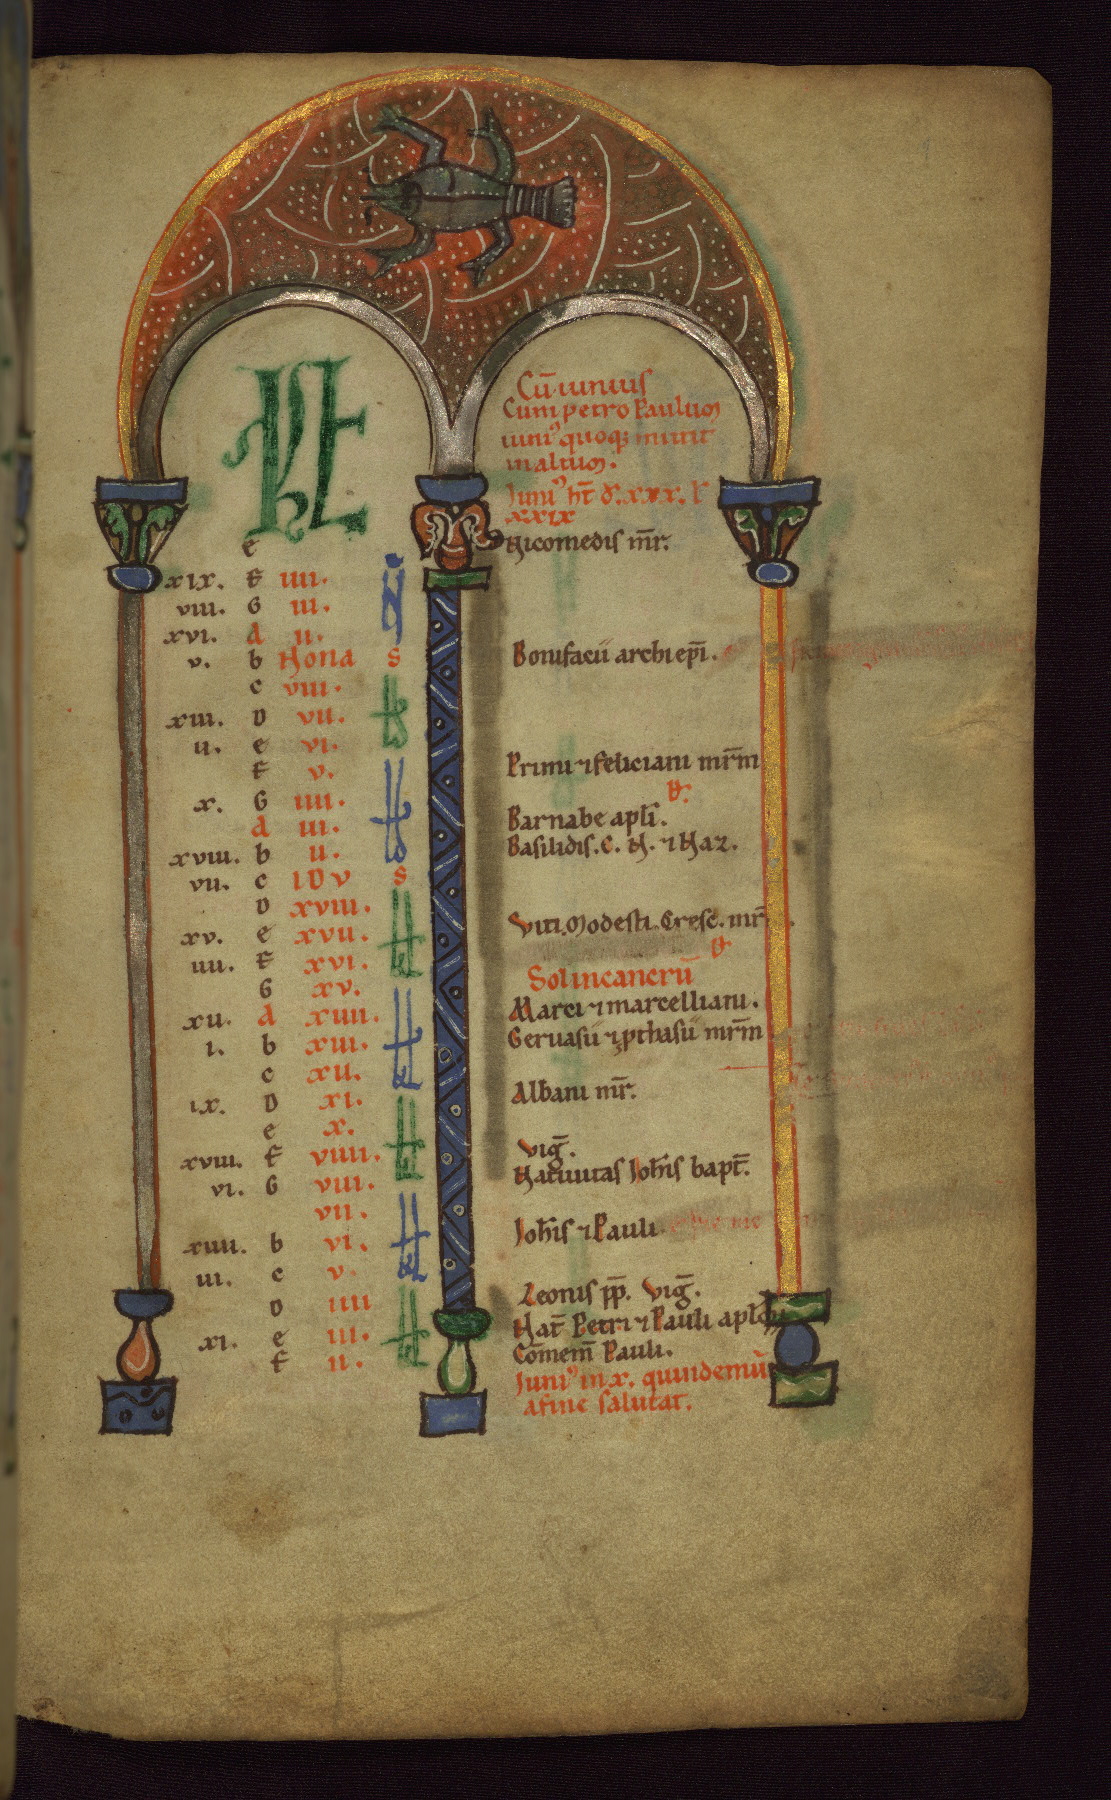 KL
Cū iunius
Cum petro Paulum
iuniꝰ quoqꝫ mittit
in altum.
Juniꝰ ht̄ d̓. xxx. l̓
xxix
e Nicomedis m̄r.
xix. F iiii.
viii. G iii.
xvi. A ii.
v. b Nona s Bonifacii archiep̄i.
c viii.
xiii. D vii.
ii. e vi.
F v. Primi ⁊ feliciani mr̄m
x. G iiii.
A iii. Barnabe apl̄i.
xviii. b ii. Basilidis. C. N. ⁊ Naz.
vii. c IDV s
D xviii.
xv. e xvii. Viti. Modesti. Cresc. mr̄
iiii. F xvi.
G xv. Sol in cancrū
xii. A xiiii. Marci ⁊ marcelliani.
i. b xiii. Geruasii ⁊ ꝓthasii mr̄m
c xii.
ix. D xi. Albani mr̄.
e x.
xviii. F viiii. viḡ.
vi. G viii. Natiuitas Joh̄is bapt̄.
vii.
xiiii. b vi. Joh̄is ⁊ Pauli
iii. c v.
D iiii Leonis pp̄. Viḡ.
xi. e iii. Nat̄ Petri ⁊ Pauli aplōꝝ
F ii. Cōmem̄ Pauli.
Juniꝰ in x. quindemū
a fine salutat.